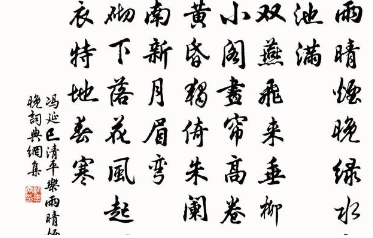 雨晴煙晚绿水
池滿
双燕飛来垂柳
小阁畫帘高卷
黄昏獨倚朱阑
南新月眉弯
砌下落花風起
衣特地春寒
冯延巳清平樂雨晴煙
晚詞典網集